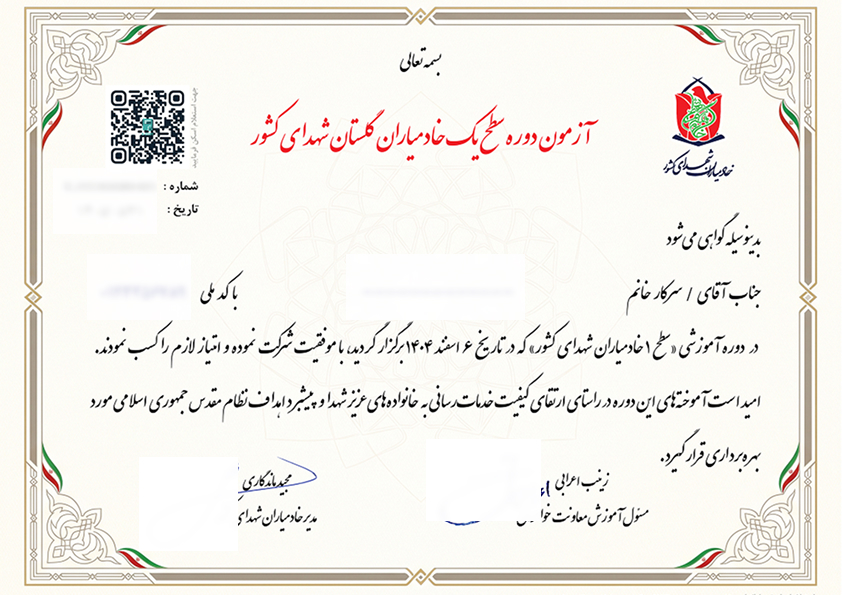 بسمه تعالی
آزمون دوره سطح یک خادمیاران گلستان شهدای کشور
خادمیاران شهدای کشور
جهت استعلام اسکن فرمایید
شماره :
تاریخ :
بدینوسیله گواهی می‌شود
جناب آقای / سرکار خانم
با کد ملی
در دوره آموزشی «سطح ۱ خادمیاران شهدای کشور» که در تاریخ ۶ اسفند ۱۴۰۴ برگزار گردید، با موفقیت شرکت نموده و امتیاز لازم را کسب نمودند.
امید است آموخته‌های این دوره در راستای ارتقای کیفیت خدمات رسانی به خانواده‌های عزیز شهدا و پیشبرد اهداف نظام مقدس جمهوری اسلامی مورد
بهره برداری قرار گیرد.
زینب اعرابی
مسئول آموزش معاونت
مجید ماندگاری
مدیر خادمیاران شهدای